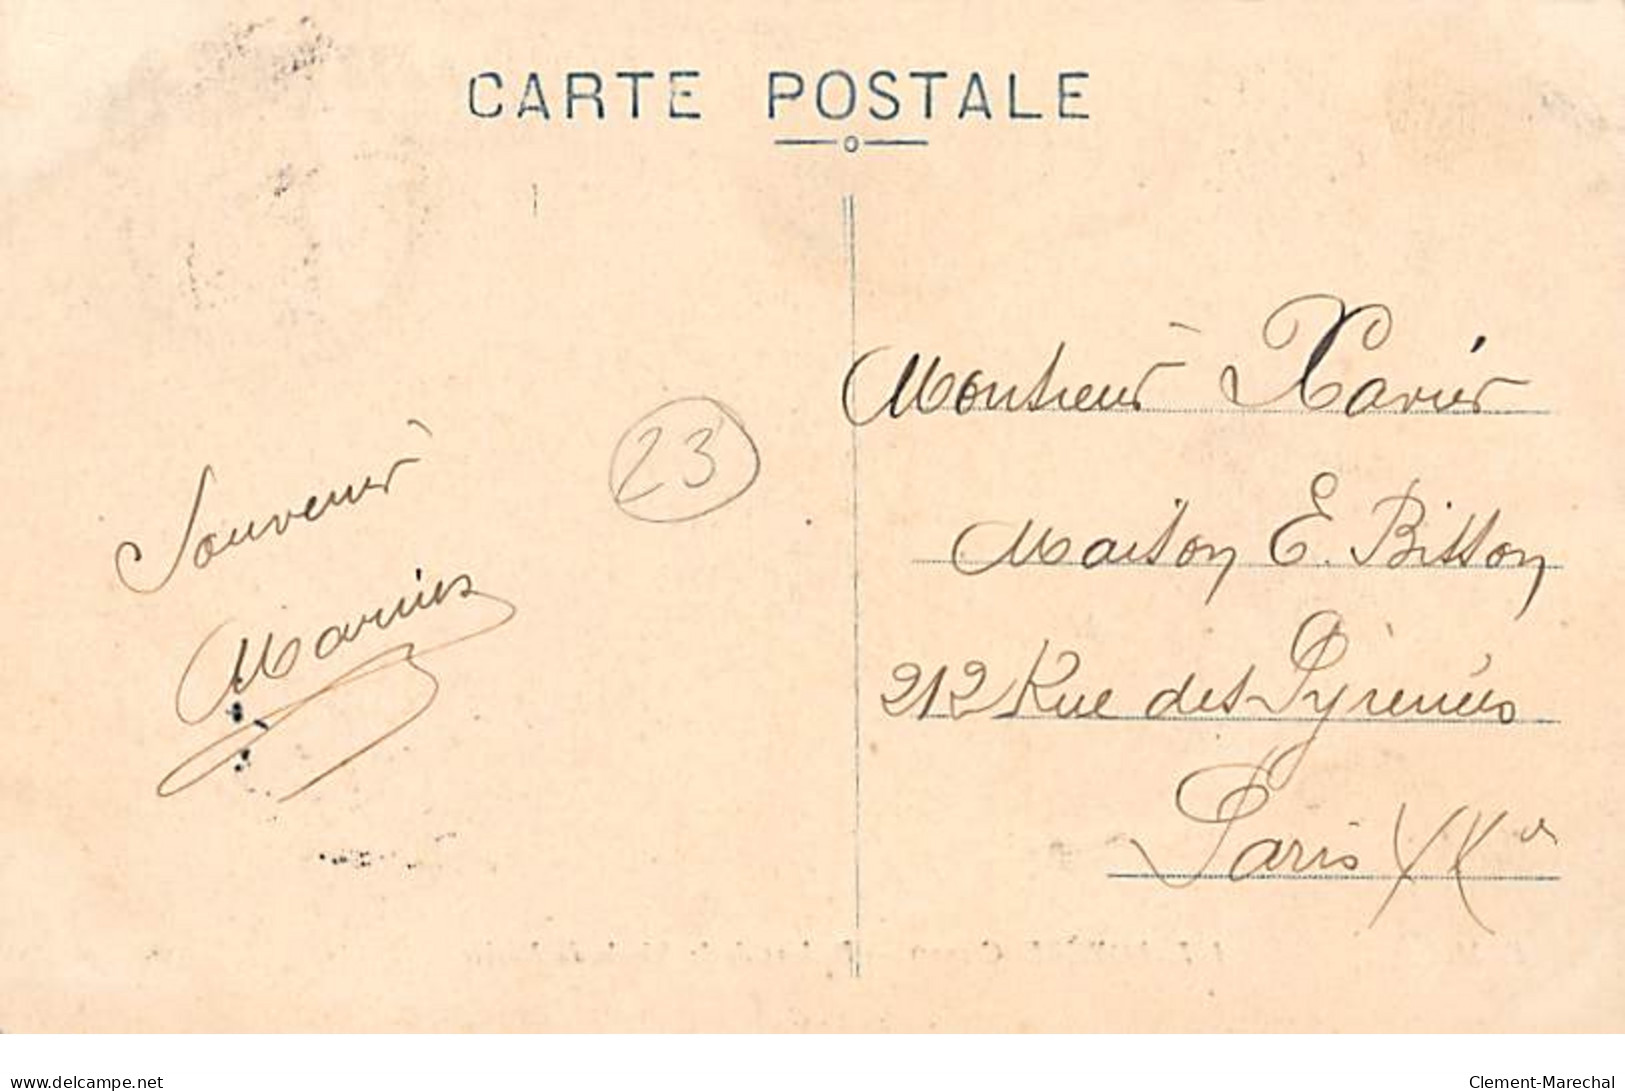 CARTE POSTALE
Souvenir
Marius
23
Monsieur Xavier
Maison E. Bisson
212 Rue des Pyrénées
Paris XXe
delcampe.net
Clement-Marechal